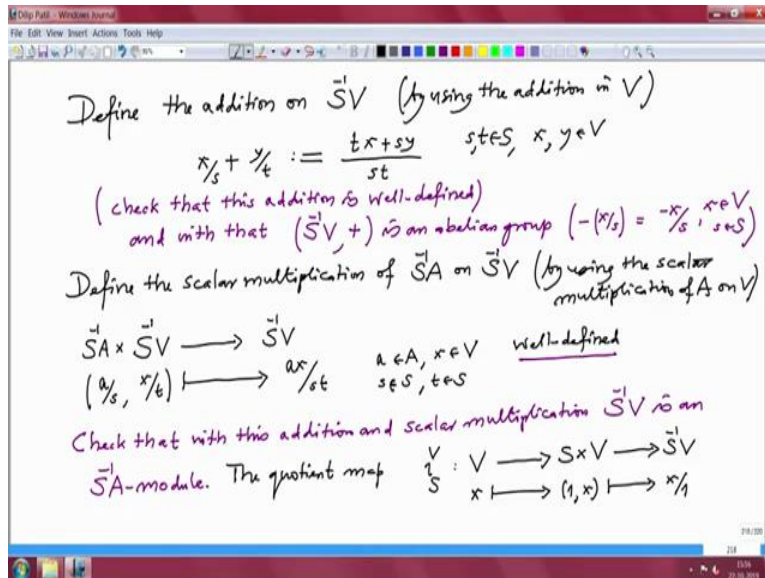 Dilip Patil - Windows Journal
File Edit View Insert Actions Tools Help
Define the addition on S⁻¹V (by using the addition in V)
x/s + y/t := (tx+sy)/st s,t∈S, x, y∈V
(check that this addition is well-defined)
and with that (S⁻¹V, +) is an abelian group (-(x/s) = -x/s, x∈V s∈S)
Define the scalar multiplication of S⁻¹A on S⁻¹V (by using the scalar
multiplication of A on V)
S⁻¹A × S⁻¹V ⟶ S⁻¹V
(a/s, x/t) ⟼ ax/st a∈A, x∈V s∈S, t∈S well-defined
Check that with this addition and scalar multiplication S⁻¹V is an
S⁻¹A-module. The quotient map i_S^V : V ⟶ S×V ⟶ S⁻¹V
x ⟼ (1, x) ⟼ x/1
218